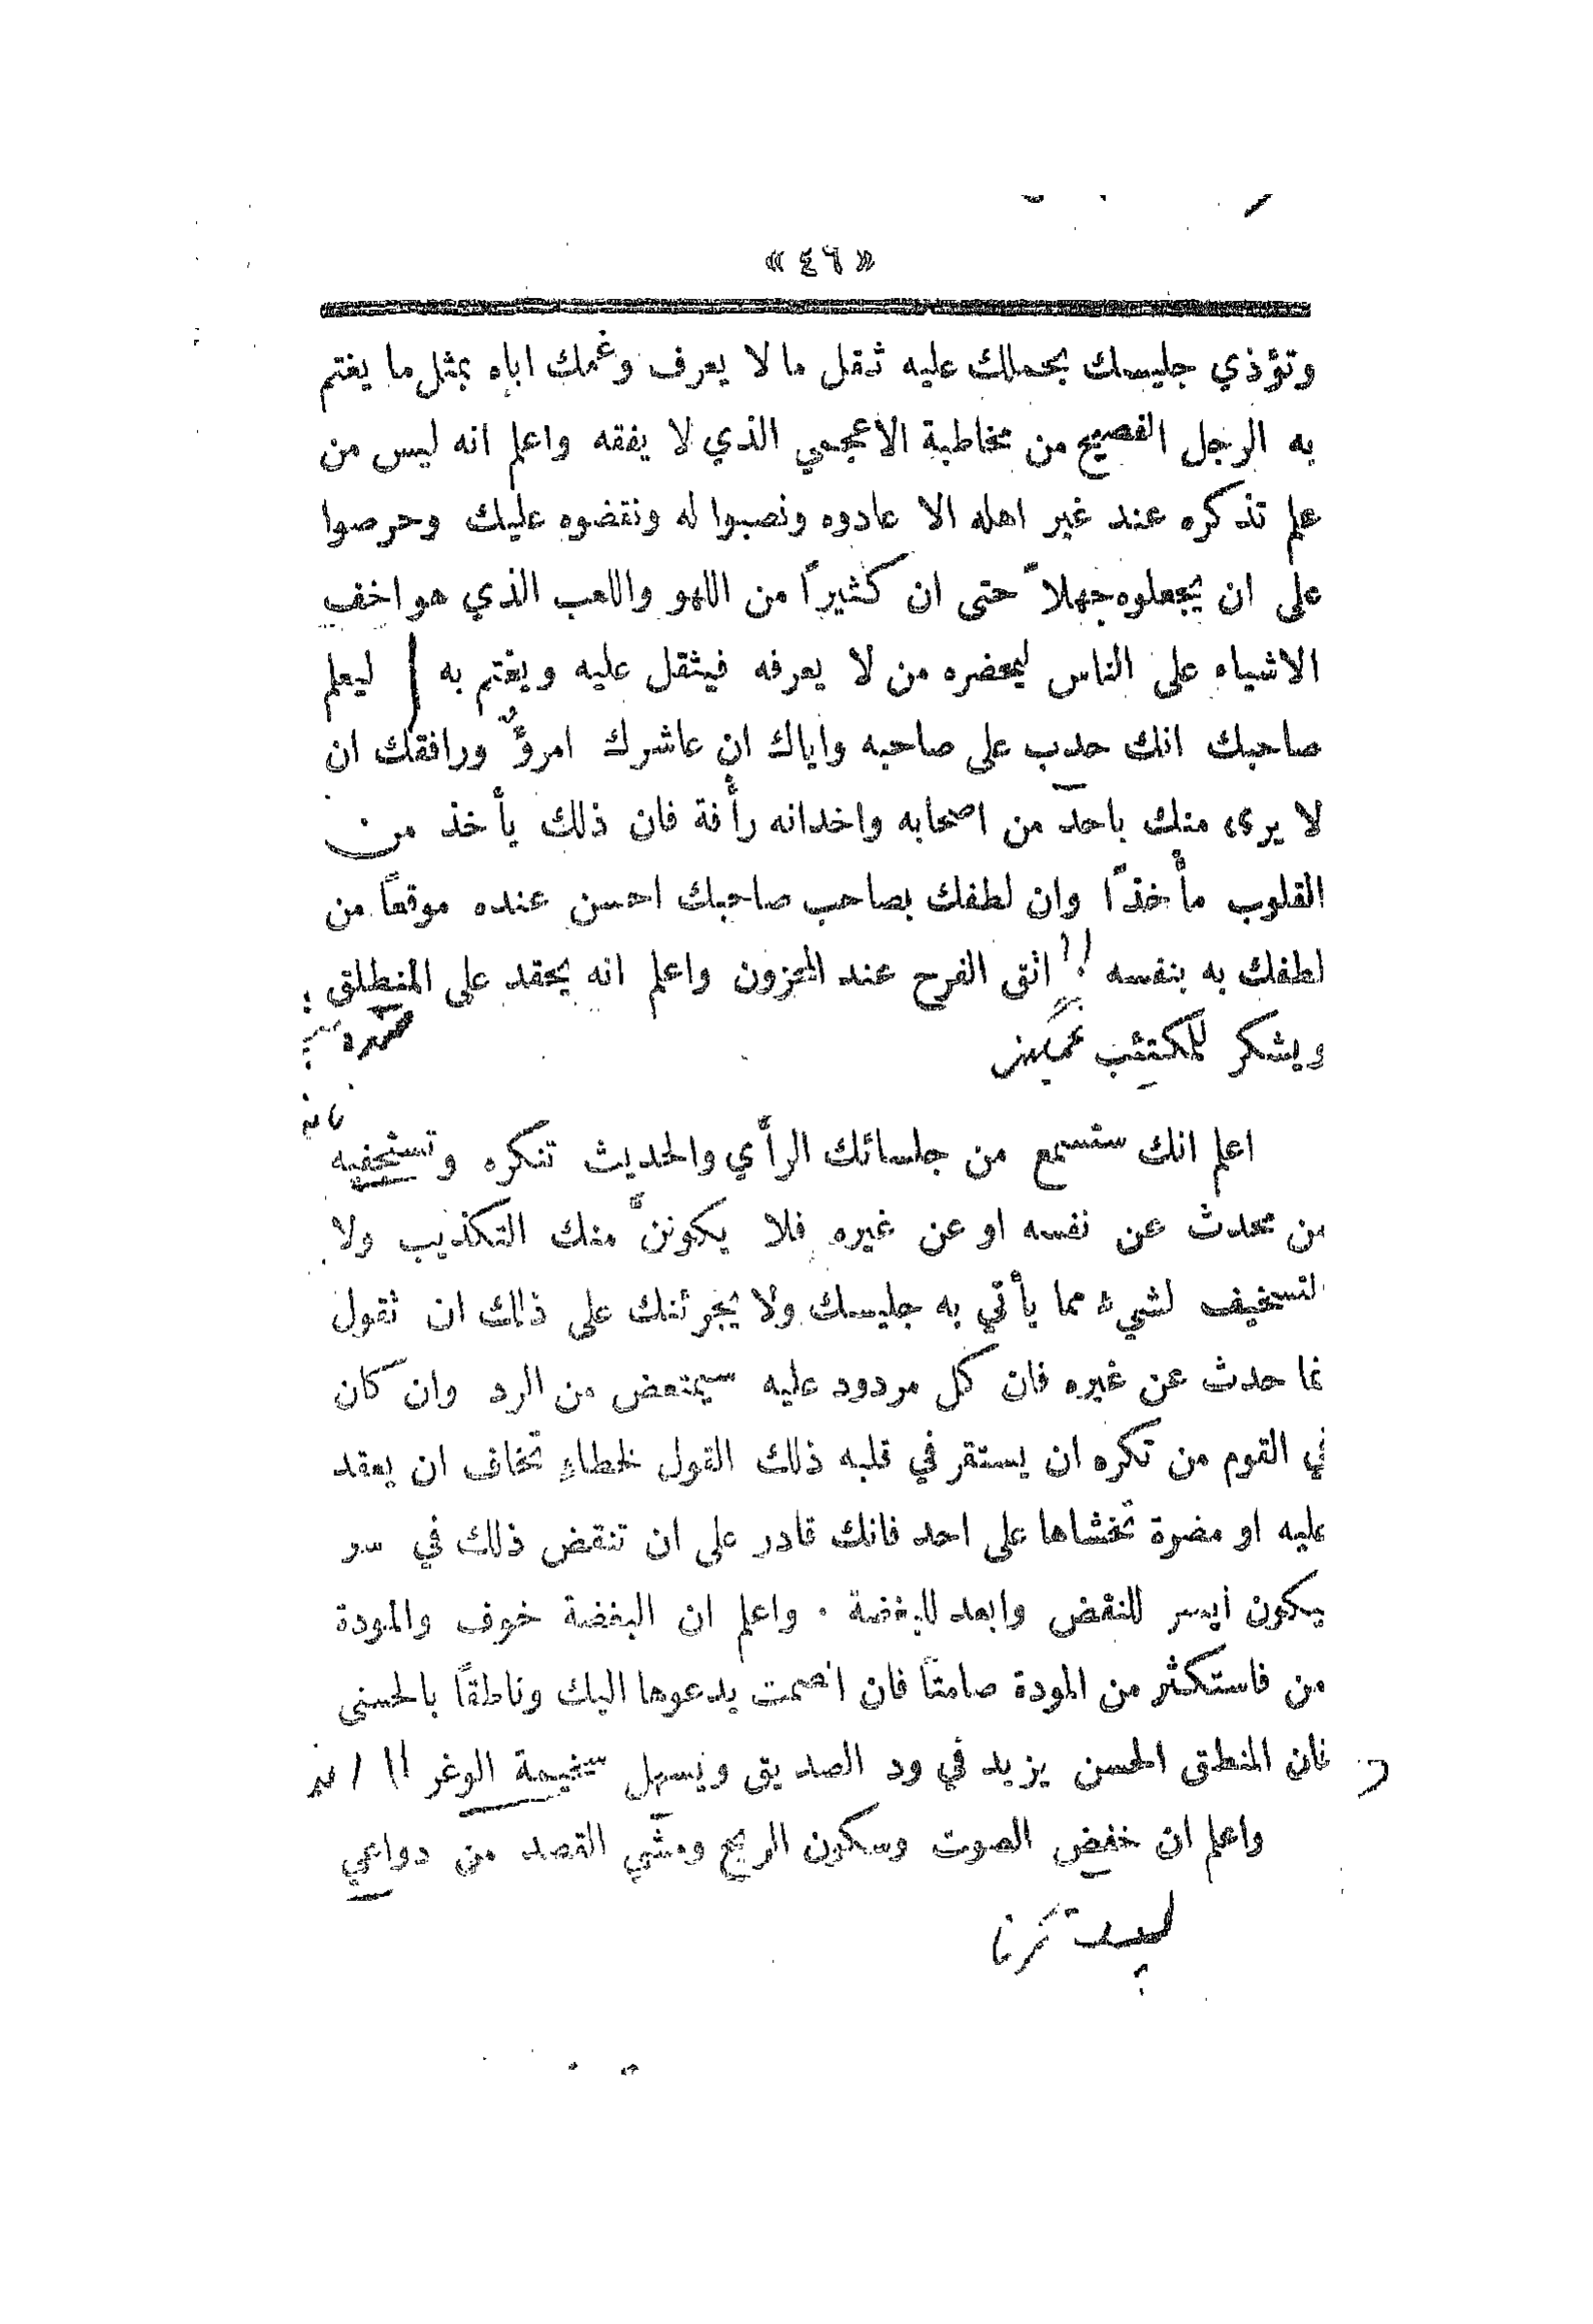 « ٤٦ »
وتؤذي جليسك بحملك عليه ثقل ما لا يعرف وغمك اياه بمثل ما يغتم
به الرجل الفصيح من مخاطبة الاعجمي الذي لا يفقه واعلم انه ليس من
علم تذكره عند غير اهله الا عادوه ونصبوا له ونقضوه عليك وحرصوا
على ان يجعلوه جهلاً حتى ان كثيراً من اللهو واللعب الذي هو اخف
الاشياء على الناس ليحضره من لا يعرفه فيثقل عليه ويغتم به ليعلم
صاحبك انك حدب على صاحبه واياك ان عاشرك امرؤٌ ورافقك ان
لا يرى منك باحد من اصحابه واخدانه رأفة فان ذلك يأخذ من
القلوب مأخذاً وان لطفك بصاحب صاحبك احسن عنده موقعاً من
لطفك به بنفسه !! اتق الفرح عند المحزون واعلم انه يحقد على المنطلق
ويشكر للمكتئب
اعلم انك ستسمع من جلسائك الرأي والحديث تنكره وتستخفيه
من محدث عن نفسه او عن غيره فلا يكوننَّ منك التكذيب ولا
لتسخيف لشيء مما يأتي به جليسك ولا يجرئنك على ذلك ان تقول
نما حدث عن غيره فان كل مردود عليه سيمتعض من الرد وان كان
في القوم من تكره ان يستقر في قلبه ذلك القول لخطاءٍ تخاف ان يعقد
عليه او مضرة تخشاها على احد فانك قادر على ان تنقض ذلك في سر
يكون أيسر للنقض وابعد للبغضة . واعلم ان البغضة خوف والمودة
من فاستكثر من المودة صامتاً فان الصمت يدعوها اليك وناطقاً بالحسنى
فان المنطق الحسن يزيد في ود الصديق ويسهل سخيمة الوغر !!
واعلم ان خفض الصوت وسكون الريح ومشي القصد من دواعي